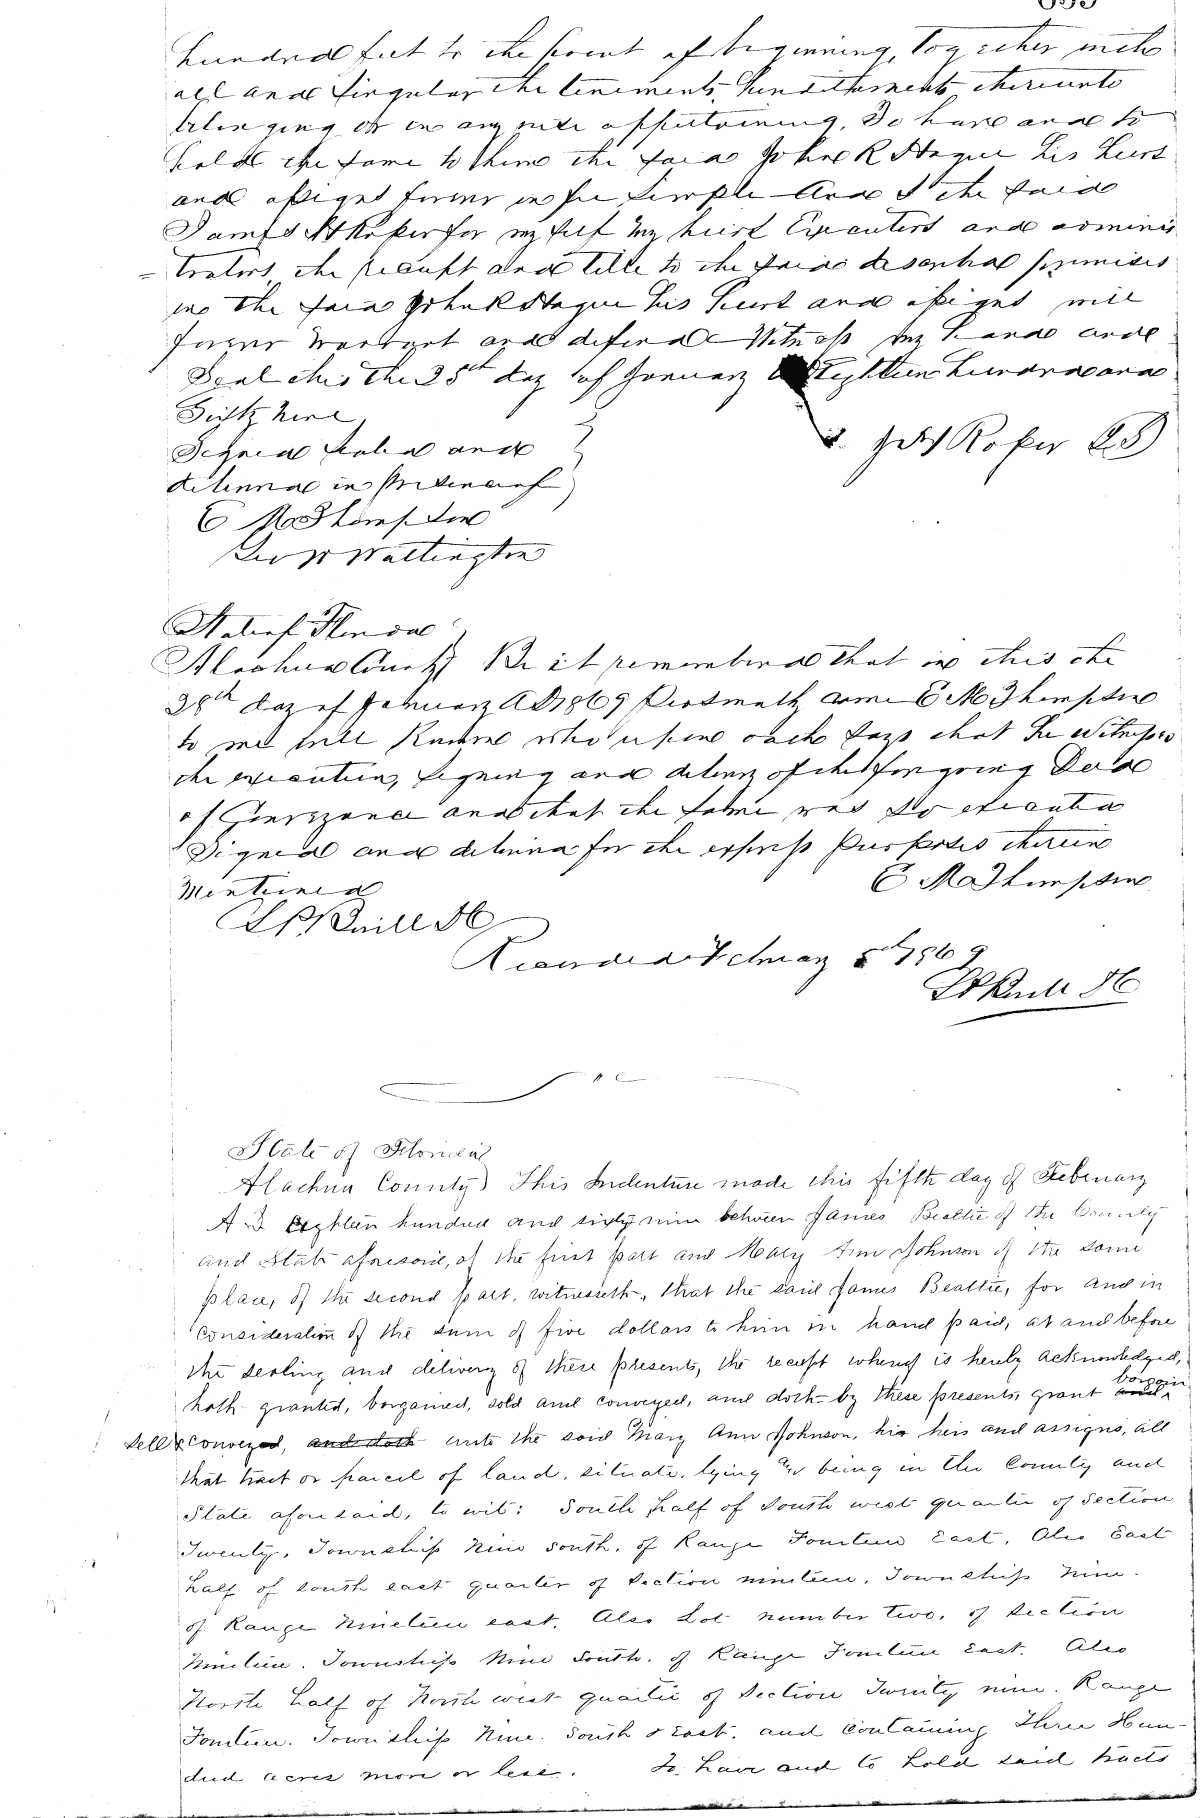 hundred feet to the point of beginning, Together with
all and singular the tenements, hereditaments thereunto
belonging or in any wise appertaining, To have and to
hold the same to him the said John R Hague his heirs
and assigns forever in fee simple And I the said
James Roper for myself my heirs Executors and adminis
trators, the and title to the said described premises
in the said John R Hague his heirs and assigns will
forever warrant and defend Witness my hand and
Seal this the 25th day of January Eighteen hundred and
Sixty nine
Signed Sealed and
delivered in presence of
Jas Roper LS
E M Thompson
Geo W Wallington
State of Florida
Alachua County} Be it remembered that on this the
28th day of January AD 1869 Personally came E M Thompson
to me well Known who upon oath says that he witnessed
the execution, signing and delivery of the forgoing Deed
of Conveyance and that the same was so executed
Signed and delivered for the express Purposes therein
Mentioned
E M Thompson
Recorded February 5th 1869
State of Florida
Alachua County) This Indenture made this fifth day of February
A.D Eighteen hundred and sixty nine between James Beattie of the County
and State aforesaid, of the first part and Mary Ann Johnson of the same
place, of the second part, witnesseth, that the said James Beattie, for and in
consideration of the sum of five dollars to him in hand paid, at and before
the sealing and delivery of these presents, the receipt whereof is hereby acknowledged,
hath granted, bargained, sold and conveyed, and doth by these presents, grant and bargain
Sell & conveyed, and doth unto the said Mary Ann Johnson, his heirs and assigns, all
that tract or parcel of land, situate, lying and being in the County and
State aforesaid, to wit: South half of South west quarter of Section
Twenty, Township Nine South, of Range Fourteen East, Also East
half of south east quarter of Section nineteen, Township Nine
of Range Nineteen east, Also Lot number two, of Section
Nineteen, Township Nine South, of Range Fourteen East, Also
North half of North west quarter of Section Twenty nine, Range
Fourteen, Township Nine, South & East, and Containing Three Hun-
dred acres more or less. To have and to hold said tracts